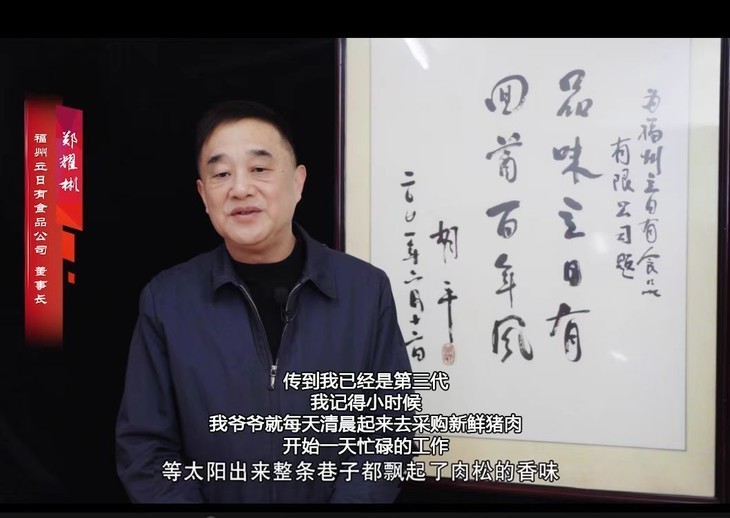 郑耀彬
福州立日有食品公司 董事长
为福州立日有食品
有限公司题
品味立日有
回首百年风
胡平
二〇〇一年六月十
传到我已经是第三代
我记得小时候
我爷爷就每天清晨起来去采购新鲜猪肉
开始一天忙碌的工作
等太阳出来整条巷子都飘起了肉松的香味